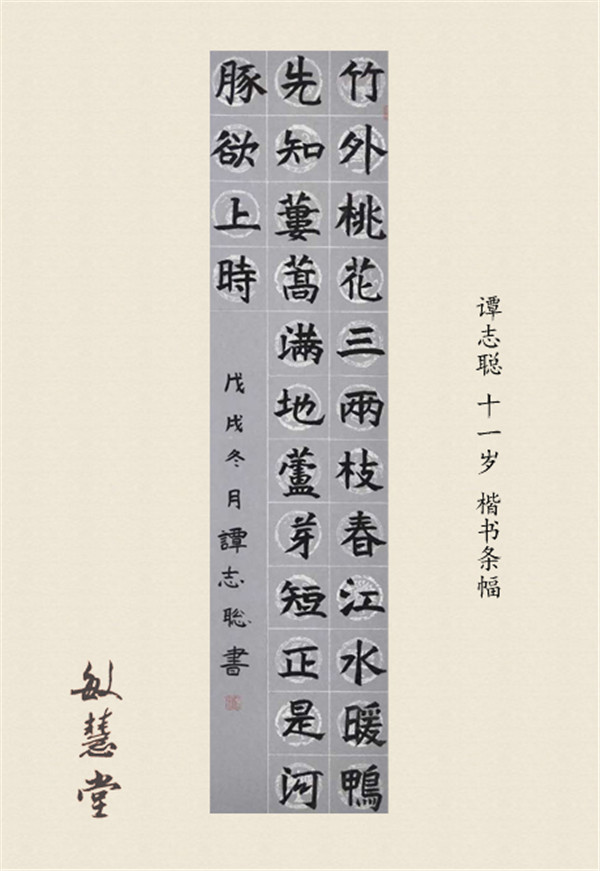 竹外桃花三兩枝春江水暖鴨
先知蔞蒿滿地蘆芽短正是河
豚欲上時
戊戌冬月譚志聡書
谭志聪 十一岁 楷书条幅
敏慧堂